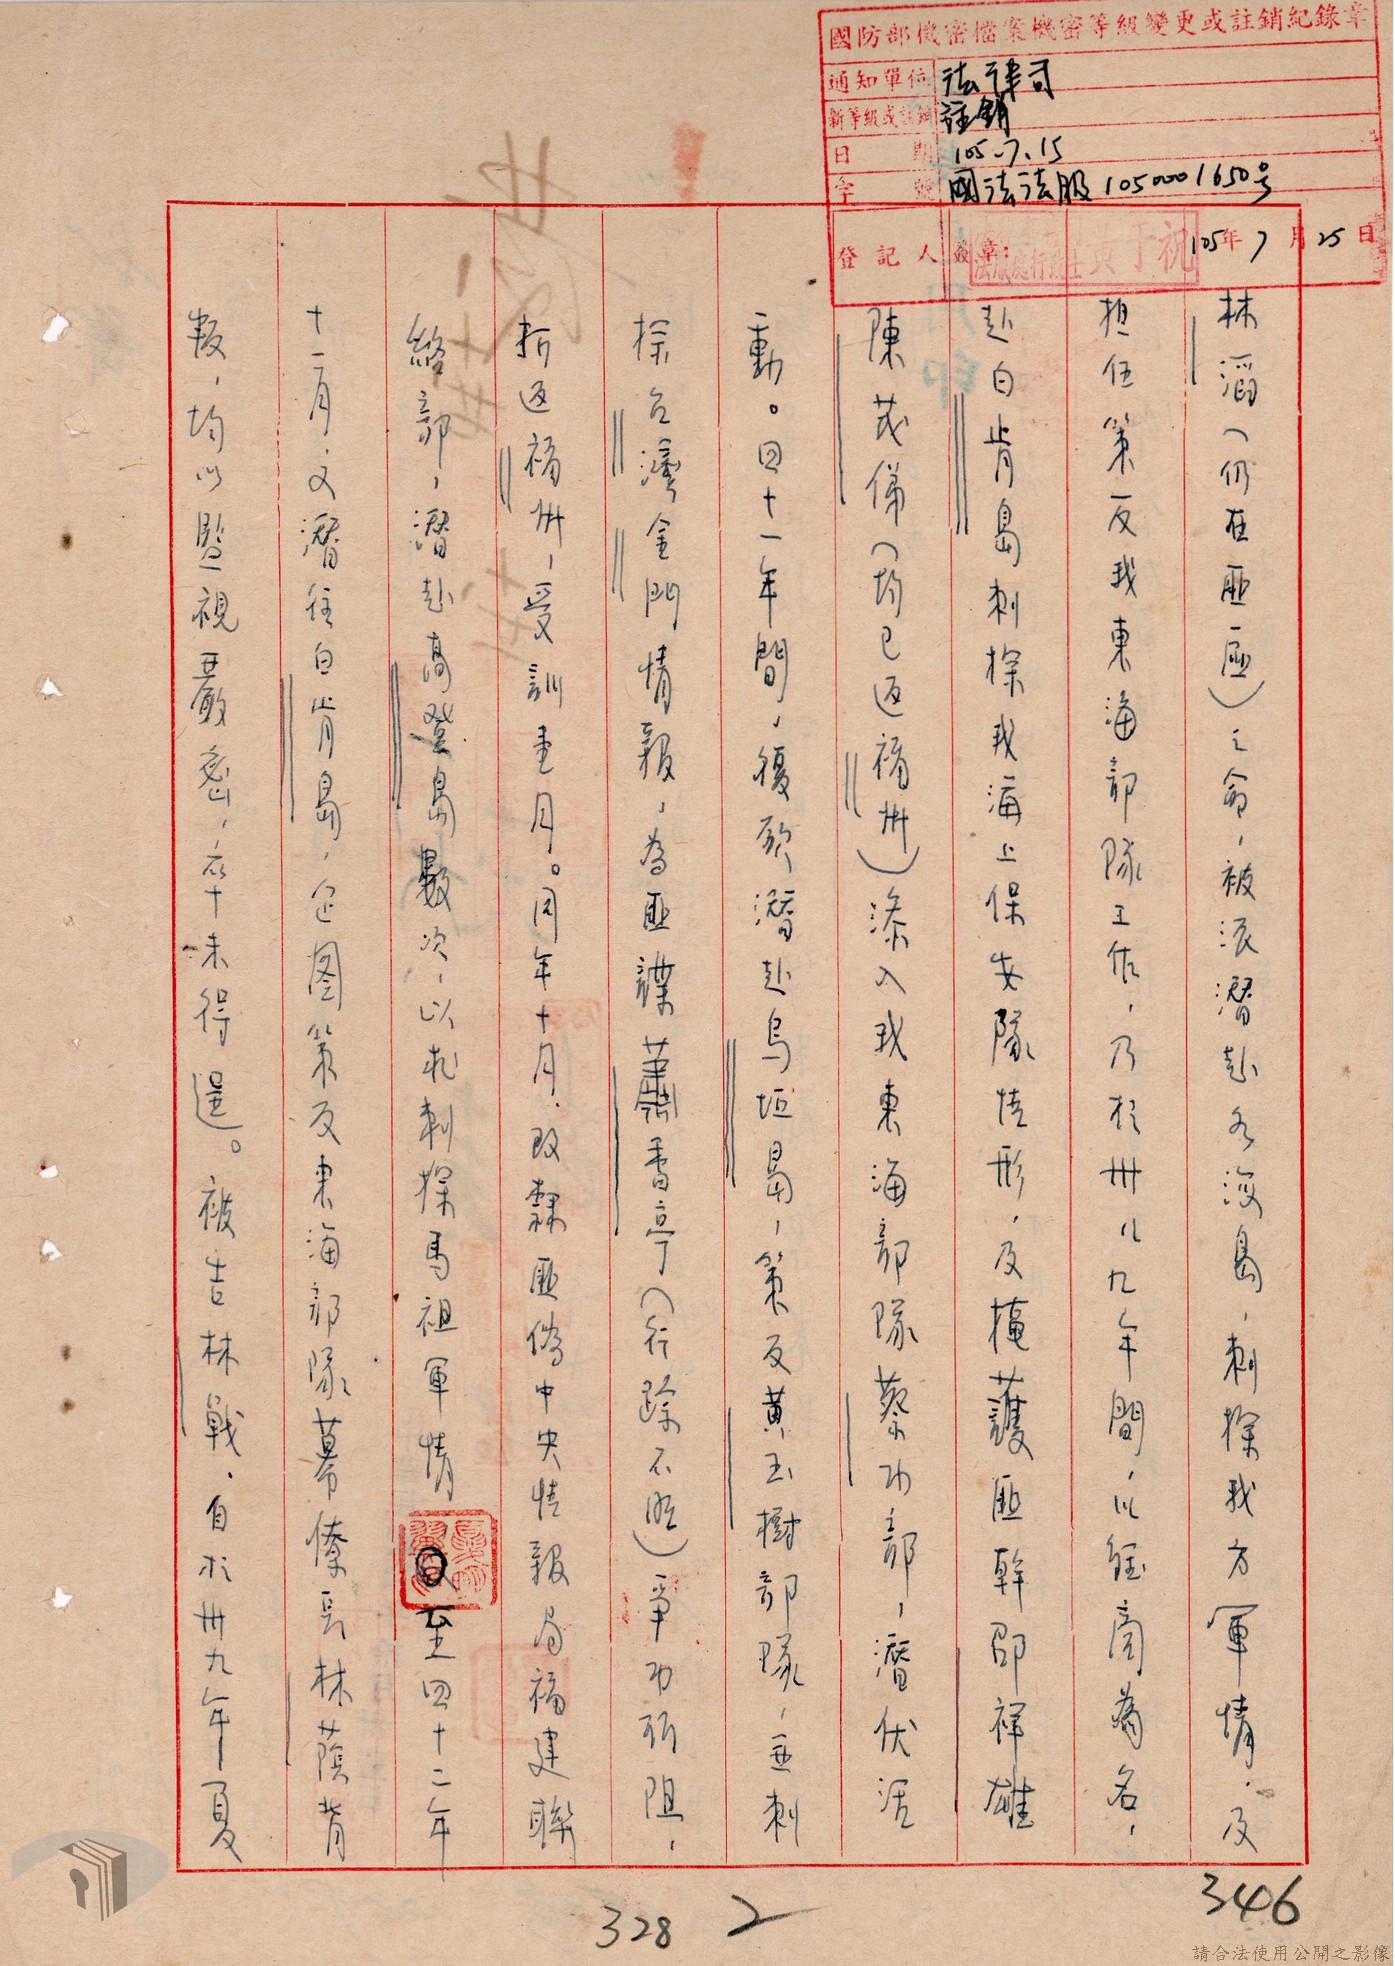 國防部機密檔案機密等級變更或註銷紀錄章
通知單位 法律司
新等級或註銷 註銷
日期 105.7.15
字號 國法法服1050001650号
登記人簽章: 黃于祝 105年7月25日
林滔（仍在匪區）之命，被派潛赴各海島，刺探我方軍情，及
担任策反我東海部隊工作，乃於卅八九年間，以經商為名，
赴白肯島刺探我海上保安隊情形，及掩護匪幹邵祥雄
陳茂俤（均已返福州）滲入我東海部隊蔡功部，潛伏活
動。四十一年間，復欲潛赴烏坵島，策反黃玉樹部隊，並刺
探台灣金門情報，為匪諜蕭香亭（行踪不明）爭功所阻，
折返福州，受訓壹月。同年十月，改隸匪偽中央情報局福建聯
絡部，潛赴高登島數次，以批刺探馬祖軍情 至四十二年
十一月，又潛往白肯島，企图策反東海部隊幕僚長林蔭背
叛，均以監視嚴密，卒未得逞。被告林戰，自於卅九年夏
346
328
2
請合法使用公開之影像